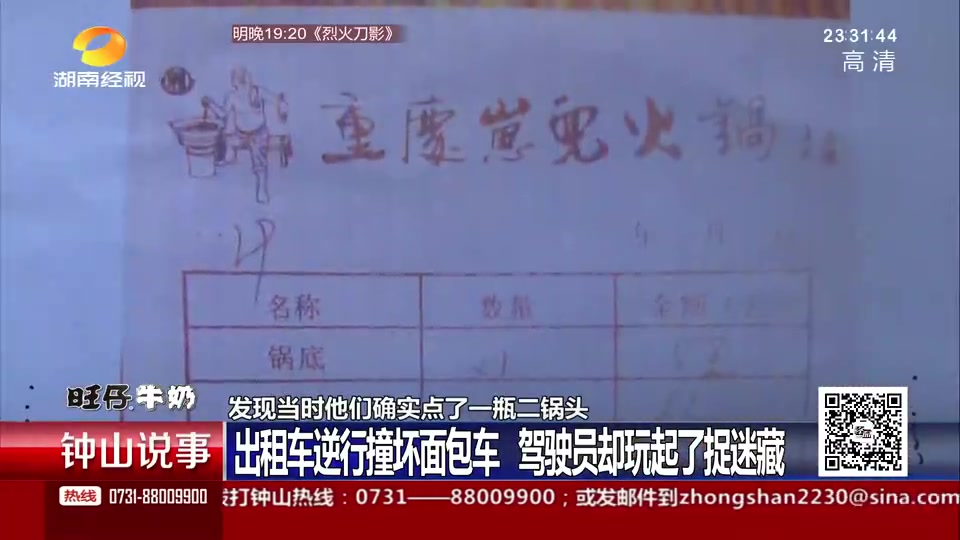 明晚19:20《烈火刀影》
23:31:44
高清
湖南经视
重庆崽儿火锅
年 月
名称 数量 金额
锅底
旺仔牛奶
发现当时他们确实点了一瓶二锅头
钟山说事
出租车逆行撞坏面包车 驾驶员却玩起了捉迷藏
热线 0731-88009900
打钟山热线：0731——88009900；或发邮件到zhongshan2230@sina.com